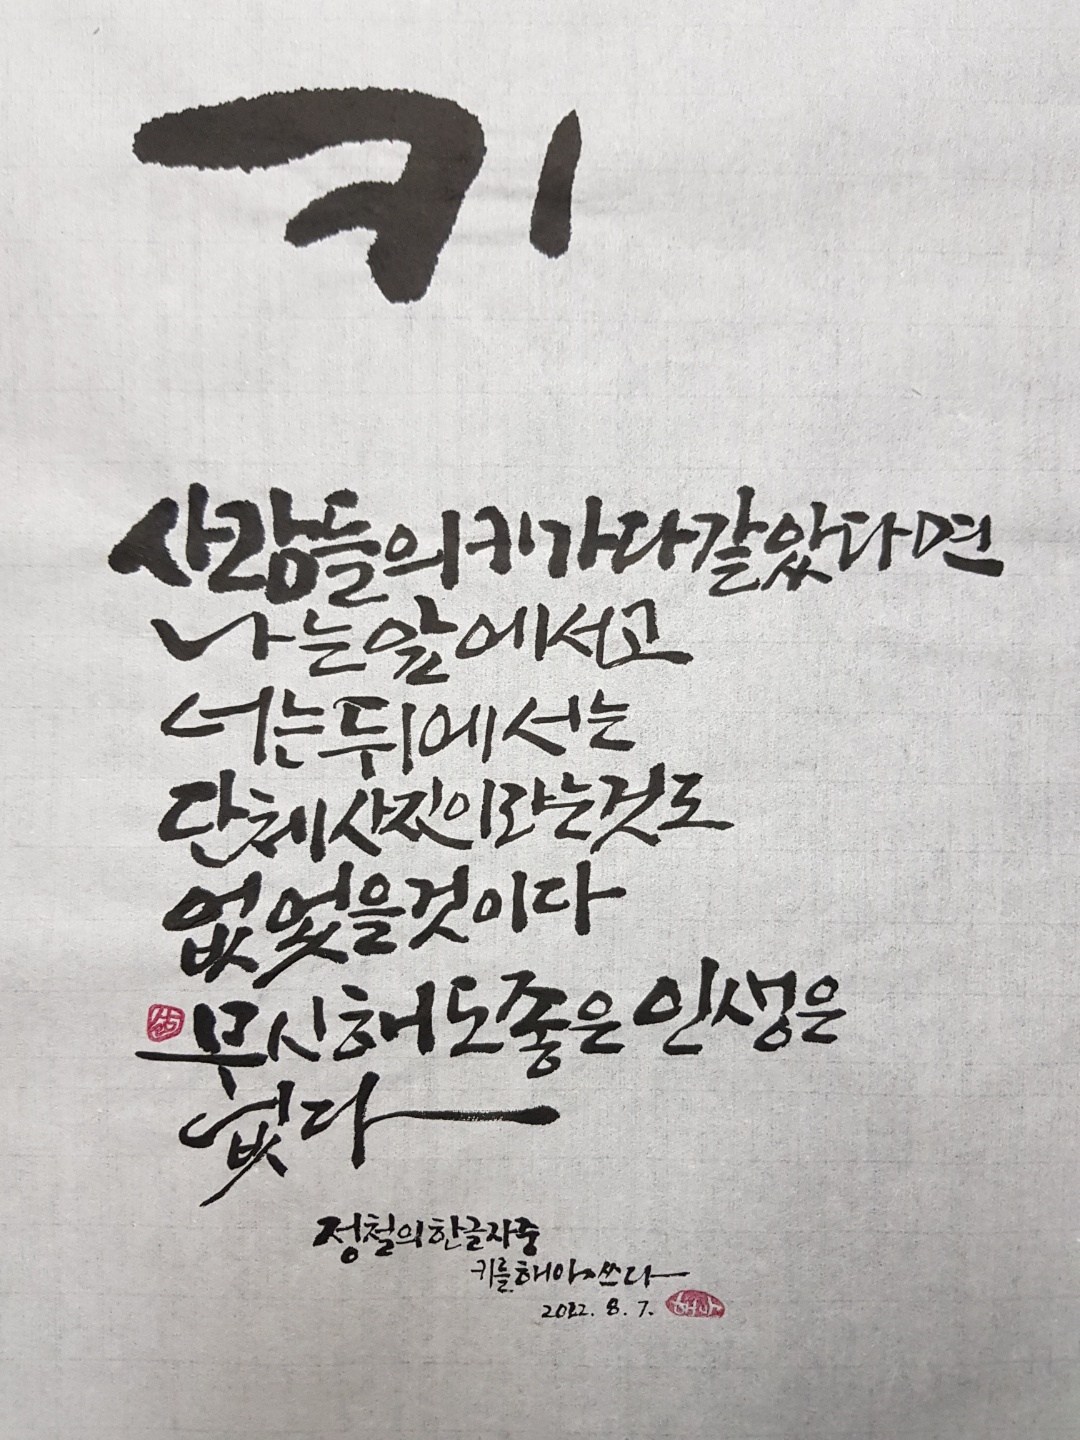 키
사람들의 키가 다 같았다면
나는 앞에 서고
너는 뒤에 서는
단체사진이라는 것도
없었을 것이다
무시해도 좋은 인생은
없다
정철의 한글자 중
키를 해아 쓰다
2022. 8. 7.
해아